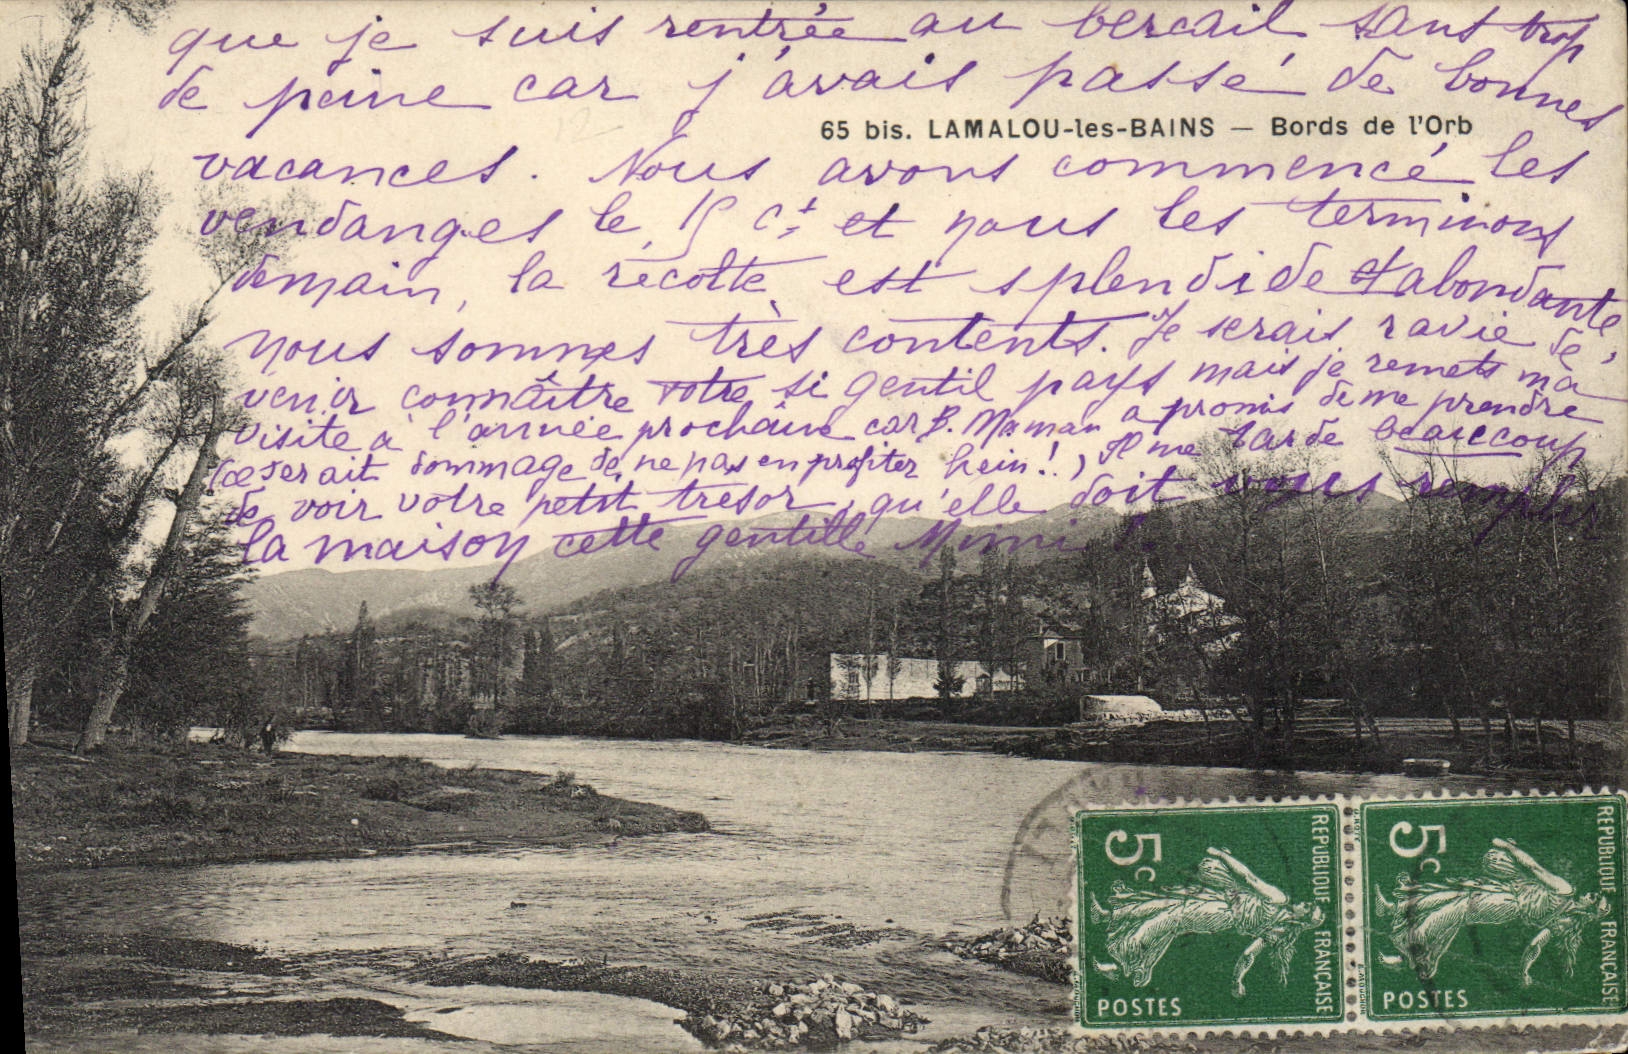 que je suis rentrée au bercail sans trop
de peine car j'avais passé de bonnes
65 bis. LAMALOU-les-BAINS — Bords de l'Orb
vacances. Nous avons commencé les
vendanges le 15 ct et nous les terminons
demain, la récolte est splendide et abondante,
nous sommes très contents. Je serais ravie de
venir connaître votre si gentil pays mais je remets ma
visite à l'année prochaine car B. Maman a promis de me prendre
(ce serait dommage de ne pas en profiter hein!), Il me tarde beaucoup
de voir votre petit trésor, qu'elle doit vous remplir
la maison cette gentille Mimi
5c REPUBLIQUE FRANÇAISE POSTES
5c REPUBLIQUE FRANÇAISE POSTES